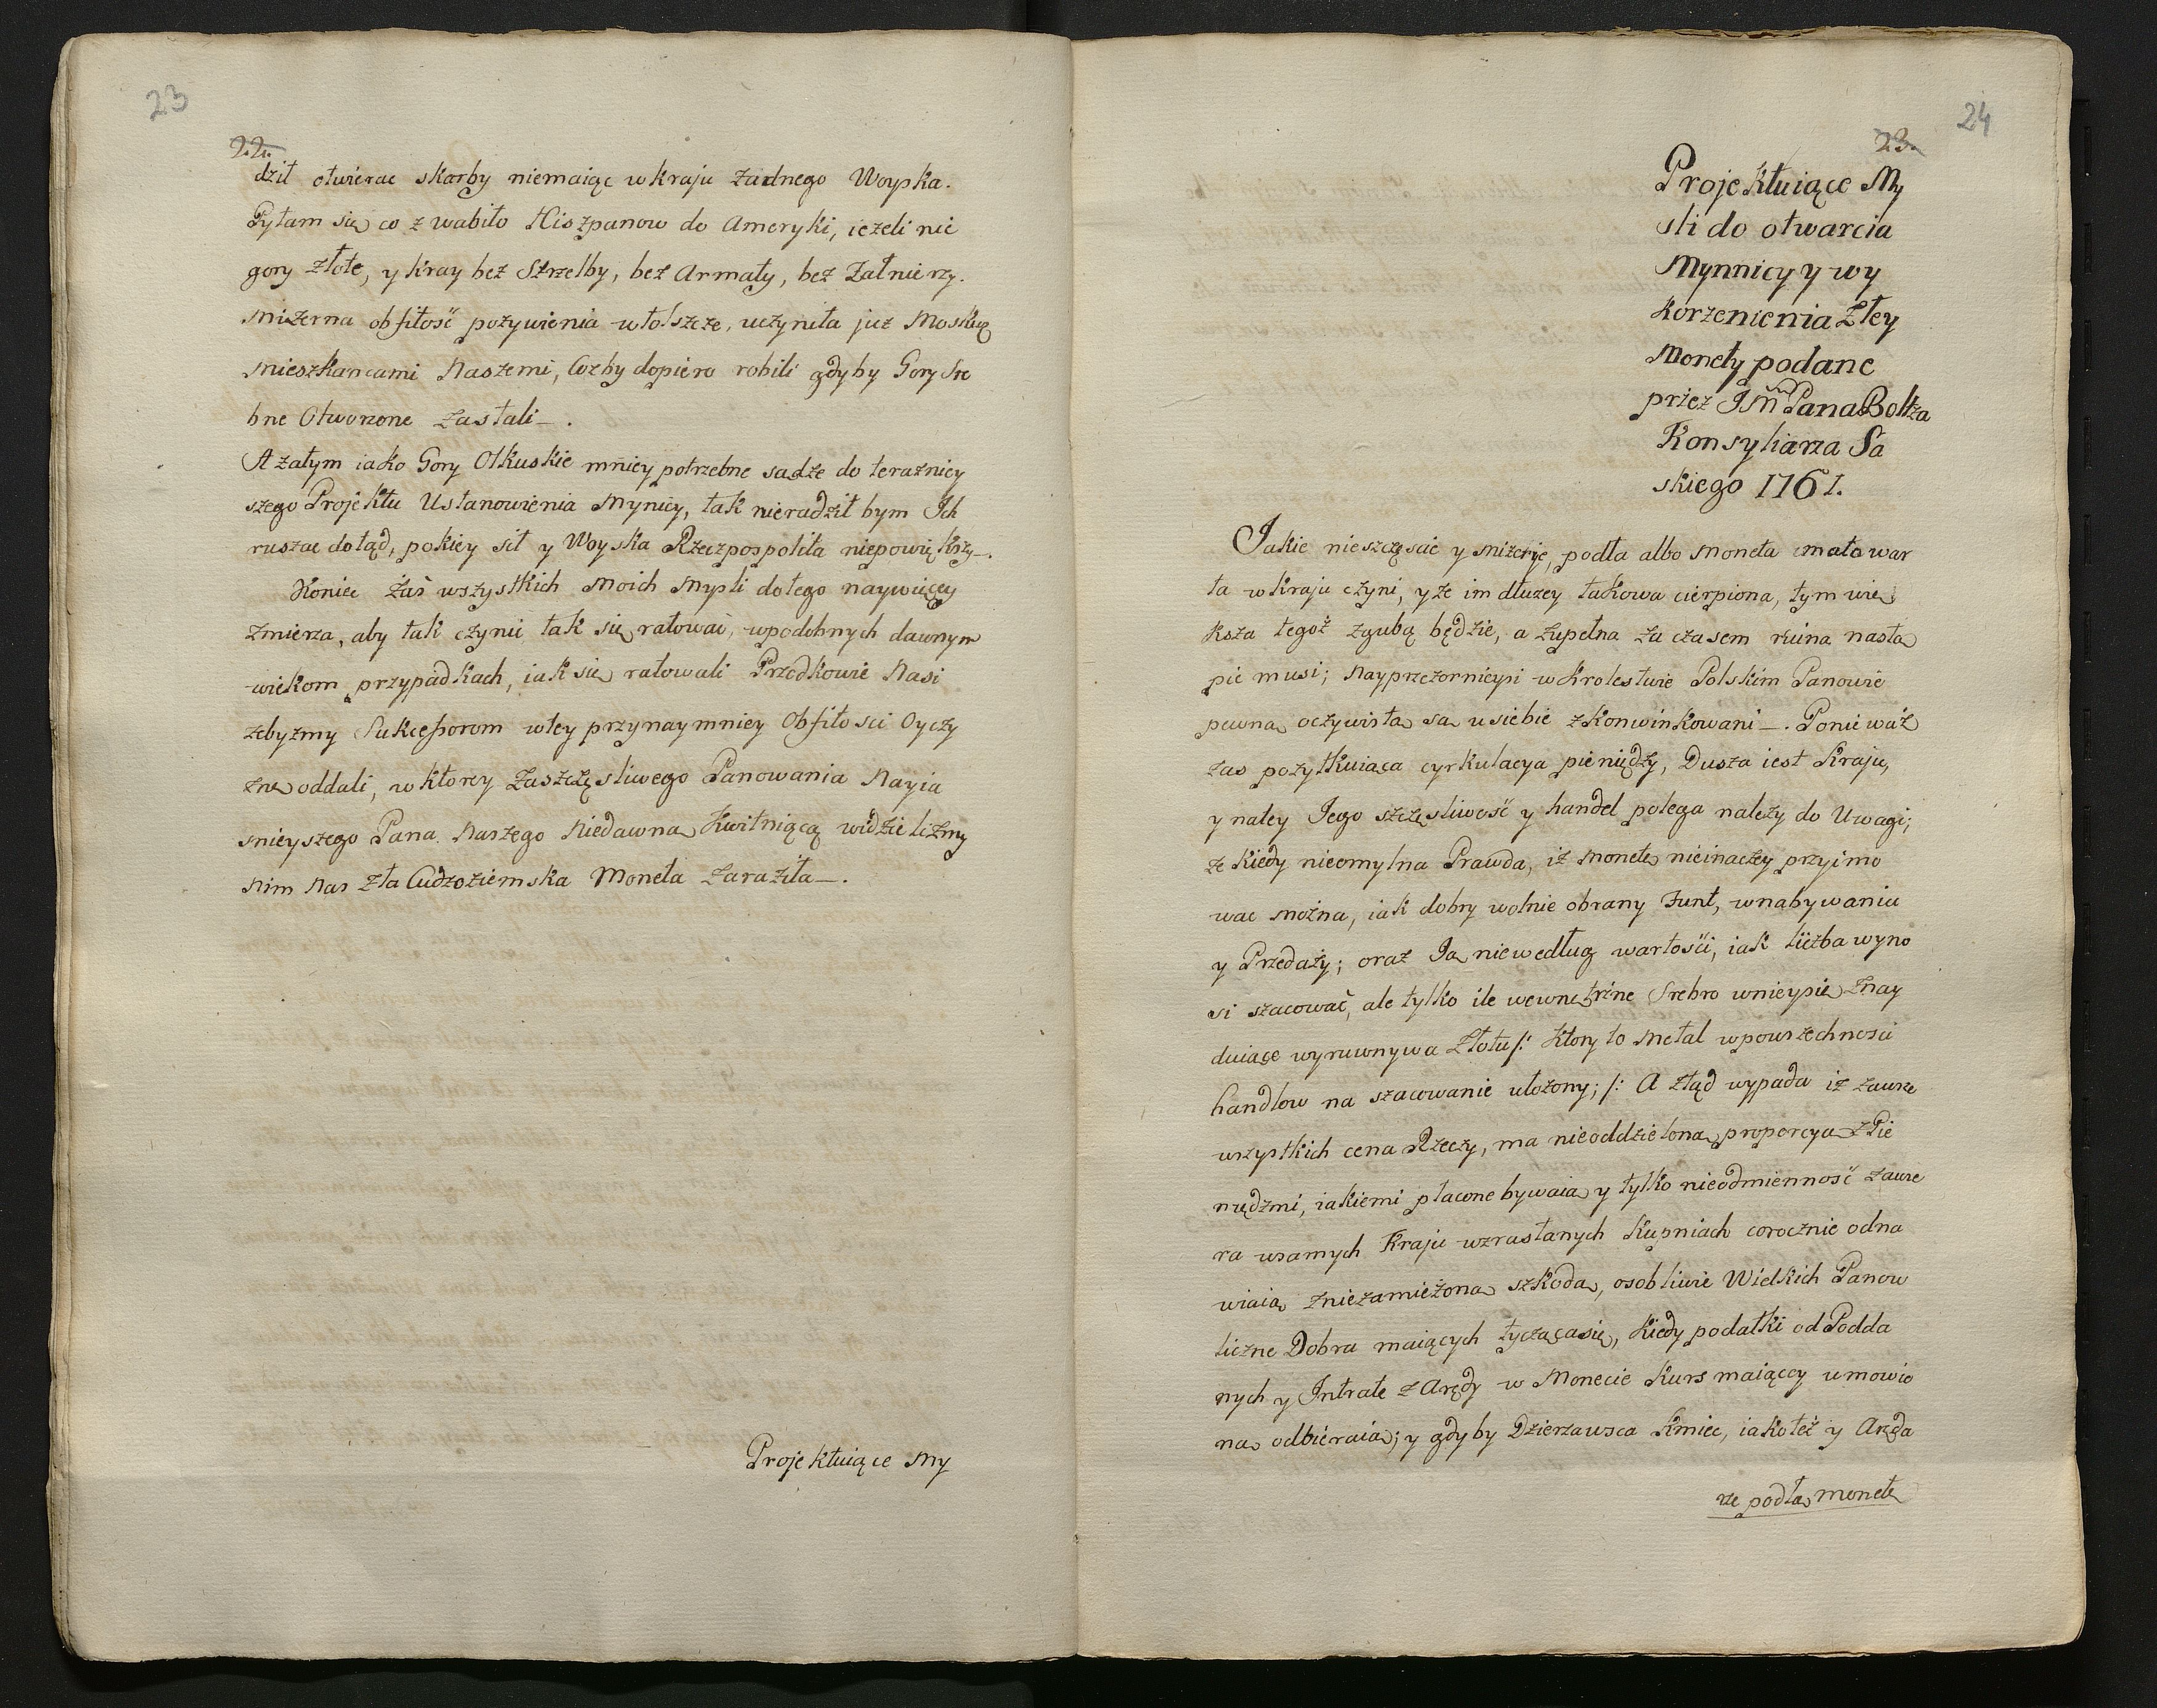 23
22.
dził otwierac skarby niemaiąc w kraju żadnego Woyska.
Pytam się co z wabiło Hiszpanow do Ameryki, ieżeli nie
gory złote, y kray bez Strzelby, bez Armaty, bez Żałnierzy.
Mizerna obfitość pożywienia w Polszcze, uczyniła już Moskwę
Mieszkancami Naszemi, Cożby dopiero robili gdyby Gory Sre
bne Otworzone Zastali.
A zatym iako Gory Olkuskie mniey potrzebne sadże do terazniey
szego Projektu Ustanowienia Mynicy, tak nieradził bym Ich
ruszac dotąd, pokiey sił y Woyska Rzeczpospolita niepowiększy.
Koniec żaś wszystkich Moich Mysli dotego naywięcey
zmierza, aby tak czynić tak się ratować, wpodobnych dawnym
wiekom przypadkach, iak się ratowali Przedkowie Nasi
żebyżmy Sukcessorom wtey przynaymniey Obfitosci Oyczy
znę oddali, w ktorey Zaszczęsliwego Panowania Nayia
snieyszego Pana Naszego Niedawna Kwitniącą widzielizmy
Nim Nas Zła Cudzoziemska Moneta Zaraziła.
Projektuiące My
24
23.
Projektuiące My
sli do otwarcia
Mynnicy y wy
korzenienia Złey
Monety podane
przez Jm Pana Boltza
Konsyliarza Sa
skiego 1761.
Jakie nieszczęscie y Mizerije, podła albo Moneta mało war
ta w Kraju czyni, y że im dłuzey takowa cierpiona, tym wię
ksza tegoż zgubą będzie, a Zupełna Za czasem ruina nastą
pić musi; Nayprzezornieysi w Krolestwie Polskim Panowie
pewną oczywistą są u siebie z konwinkowani. Ponieważ
zas pożytkuiąca cyrkulacya pieniędzy, Dusza iest Kraju,
y natey Jego szczęsliwość y handel polega należy do Uwagi;
że kiedy nieomylna Prawda, iż Monetę nieinaczey przyimo
wac można, iak dobry wolnie obrany Funt, w nabywaniu
y Przedaży; oraz Ją niewedług wartości, iak liczba wyno
si szacować, ale tylko ile wewnętrzne Srebro wnieysię Znay
duiące wyruwnywa Złotu /: ktory to Metal w powszechnosci
handlow na szacowanie ułożony; /: A Ztąd wypada iż Zawsze
wszystkich cena Rzeczy, ma nieoddzieloną proporcyą z Pie
niędzmi, iakiemi płacone bywaią y tylko nieodmienność Zawze
ra wsamych Kraju wzrastanych Kupniach corocznie odna
wiaią Znieżamieżoną szkodą, osobliwie Wielkich Panow
liczne Dobra maiących tyczącasię, Kiedy podatki od Podda
nych y Intratę z Arędy w Monecie Kurs maiącey umowio
ną odbieraią; y gdyby Dzierzawca Kmiec, iakoteż y Aręda
rze podłą monetę